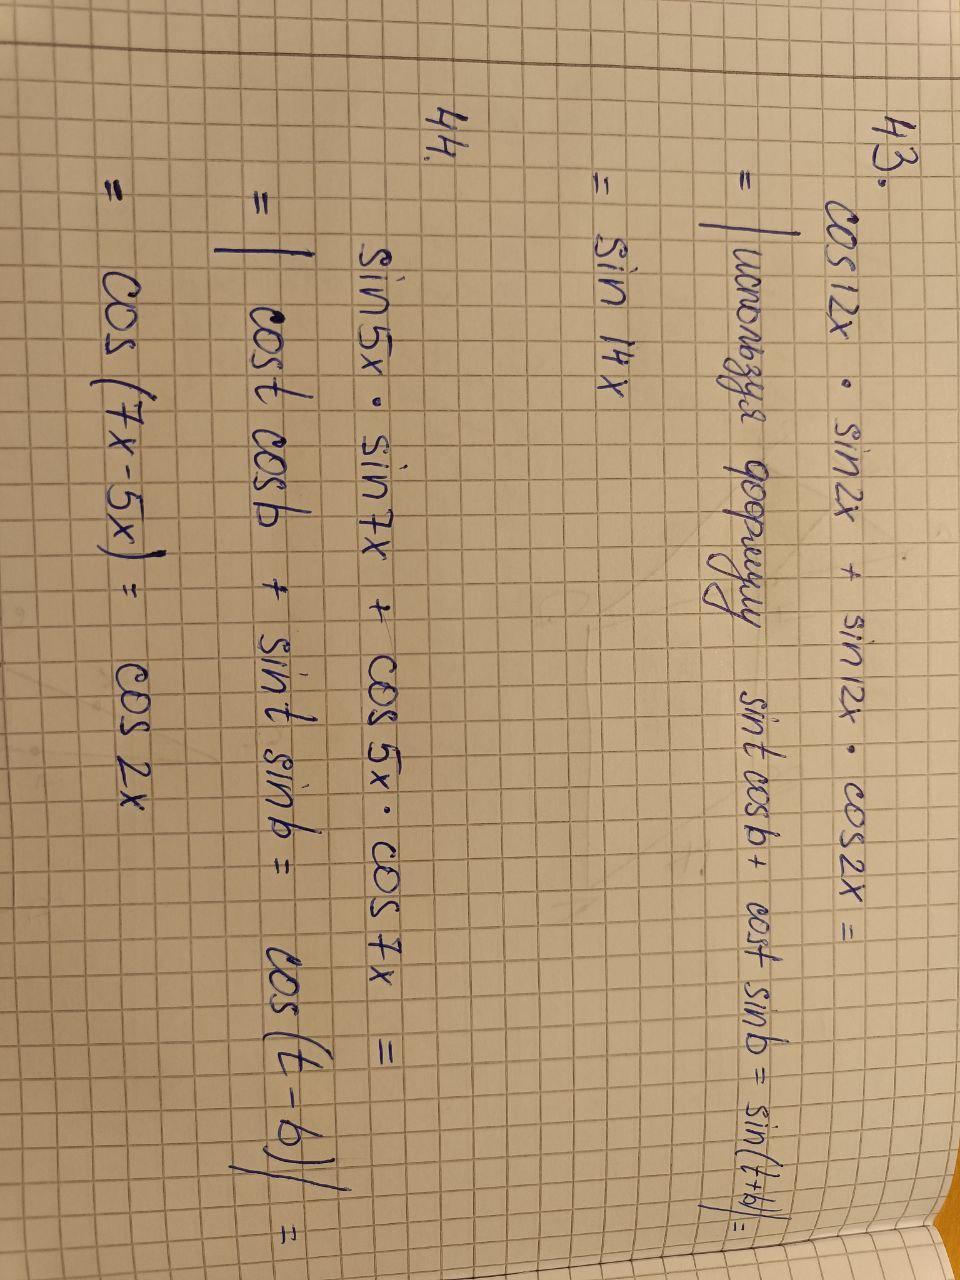 43.
cos 12x · sin 2x + sin 12x · cos 2x =
= | используя формулу sin t cos b + cos t sin b = sin(t+b)| =
= sin 14x
44.
sin 5x · sin 7x + cos 5x · cos 7x =
= | cos t cos b + sin t sin b = cos(t - b)| =
= cos (7x - 5x) = cos 2x